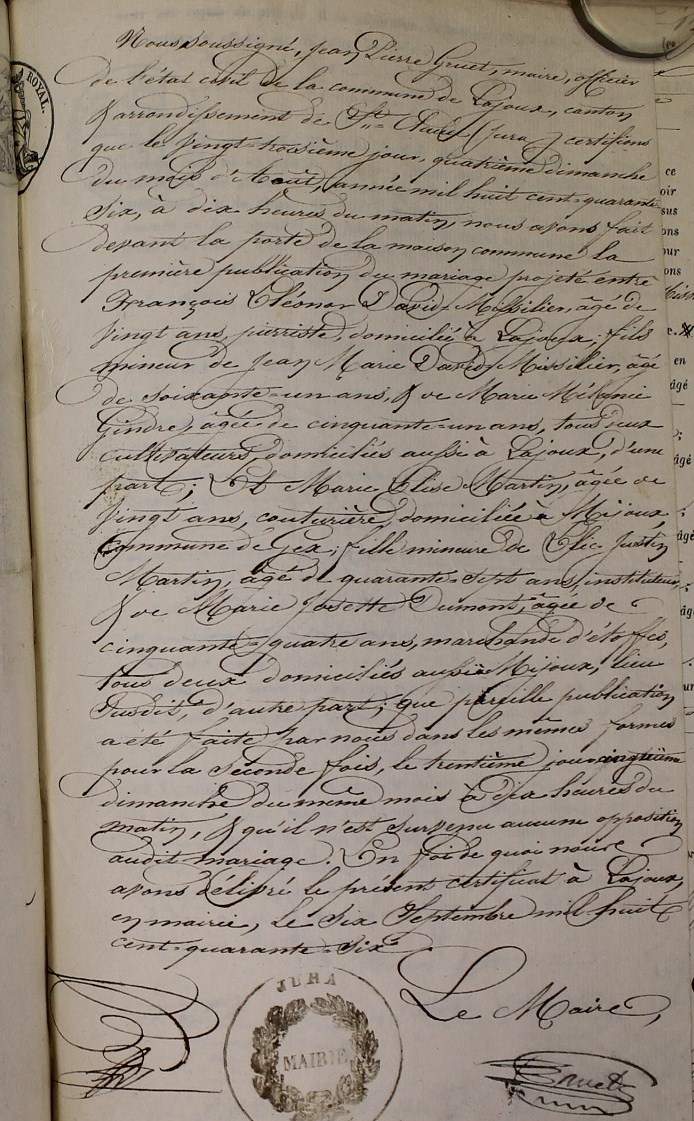 ROYAL.
Nous soussigné, Jean Pierre Gruet, maire, officier
de l'état civil de la commune de Lajoux, canton
& arrondissement de St = Claude (Jura) certifions
que le vingt=troisième jour, quatrième dimanche
du mois d'Août, année mil huit cent=quarante=
six, à dix heures du matin, nous avons fait
devant la porte de la maison commune la
première publication du mariage projeté entre
François Eléonor David=Missilier, âgé de
vingt ans, pierriste, domicilié à Lajoux; fils
mineur de Jean Marie David Missilier, âgé
de soixante=un ans, & de Marie Mélanie
Gindre, âgée de cinquante=un ans, tous deux
cultivateurs, domiciliés aussi à Lajoux, d'une
part; Et Marie Elise Martin, âgée de
vingt ans, couturière, domiciliée à Mijoux,
commune de Gex; fille mineure de Elie Justin
Martin, âgé de quarante=sept ans, instituteur,
& de Marie Josette Dumont, âgée de
cinquante=quatre ans, marchande d'étoffes,
tous deux domiciliés aussi à Mijoux, lieu
susdit, d'autre part; que pareille publication
a été faite par nous dans les mêmes formes
pour la seconde fois, le trentième jour, cinquième
dimanche du même mois à dix heures du
matin, & qu'il n'est survenu aucune opposition
audit mariage. En foi de quoi nous
avons délivré le présent certificat à Lajoux,
en mairie, le six Septembre mil huit
cent=quarante=six.
Le Maire,
JURA
MAIRIE
Gruet
ce
oir
sus
ons
our
ons
en
âgé
âgé
âgé